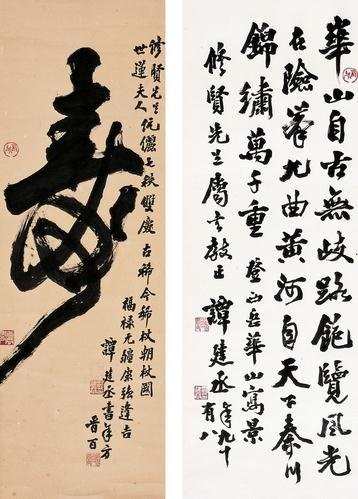 華山自古無歧路飽覽風光
在險峯九曲黃河自天下秦川
錦繡萬千重 登山岳華山寫景
修賢先生屬書教正 譚建丞年九十
有八
壽
修賢先生伉儷七秩雙慶 古稀今稱杖朝杖國
世蓮夫人
福祿无疆康強逢吉
譚建丞書年方
晉百